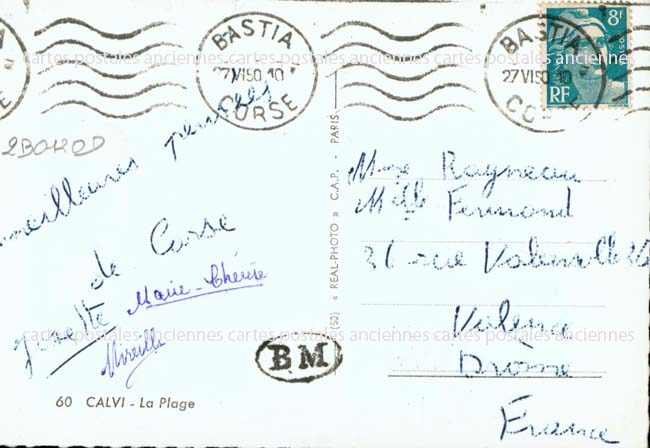 BASTIA
27 VI 50 10
CORSE
BASTIA
27 VI 50 10
CORSE
8F
RF
cartes postales anciennes cartes postales anciennes cartes postales anciennes
meilleures pensées
de Corse
Josette
Marie-Thérèse
Mireille
(60) « REAL-PHOTO » C.A.P. - PARIS
Mme Rayneau
Mlle Fermond
26 rue
Valence
Drome
France
BM
60 CALVI - La Plage
cartes postales anciennes cartes postales anciennes cartes postales anciennes